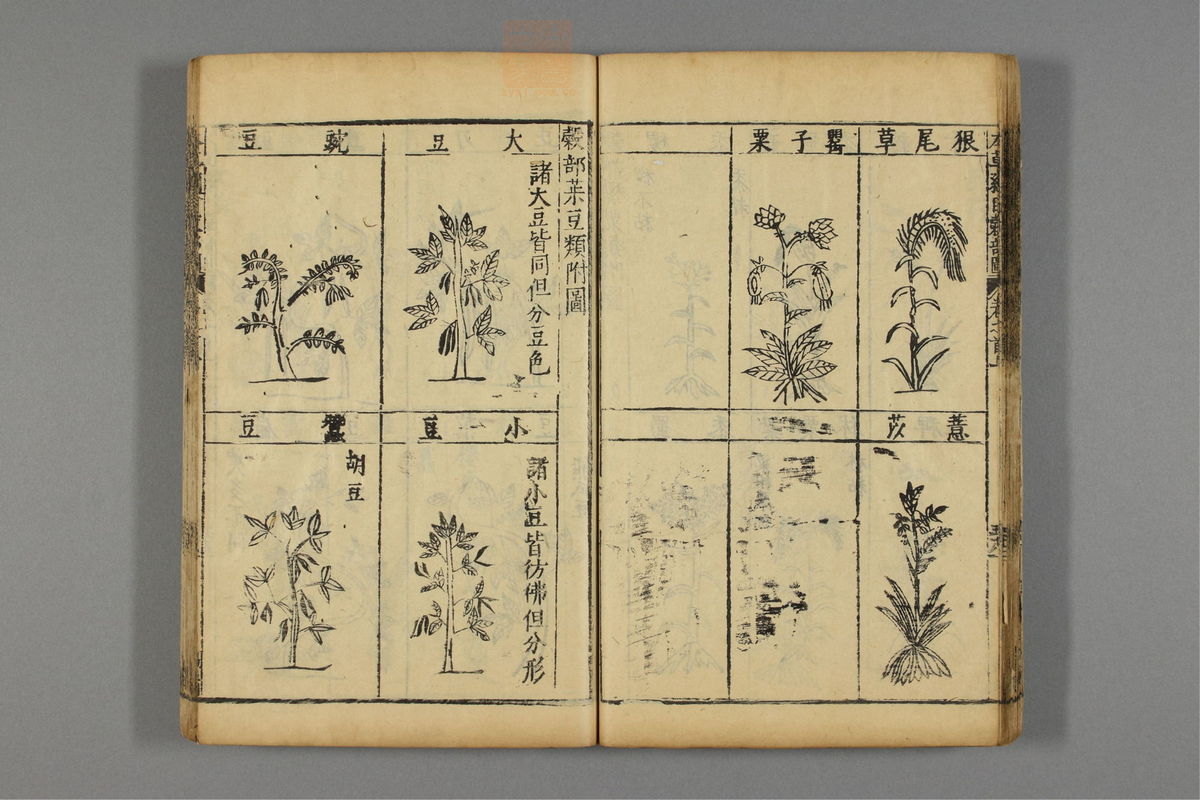 狼尾草
罌子粟
薏苡
穀部菜豆類附圖
大豆
諸大豆皆同但分豆色
豌豆
小豆
諸小豆皆彷彿但分形
蠶豆
胡豆